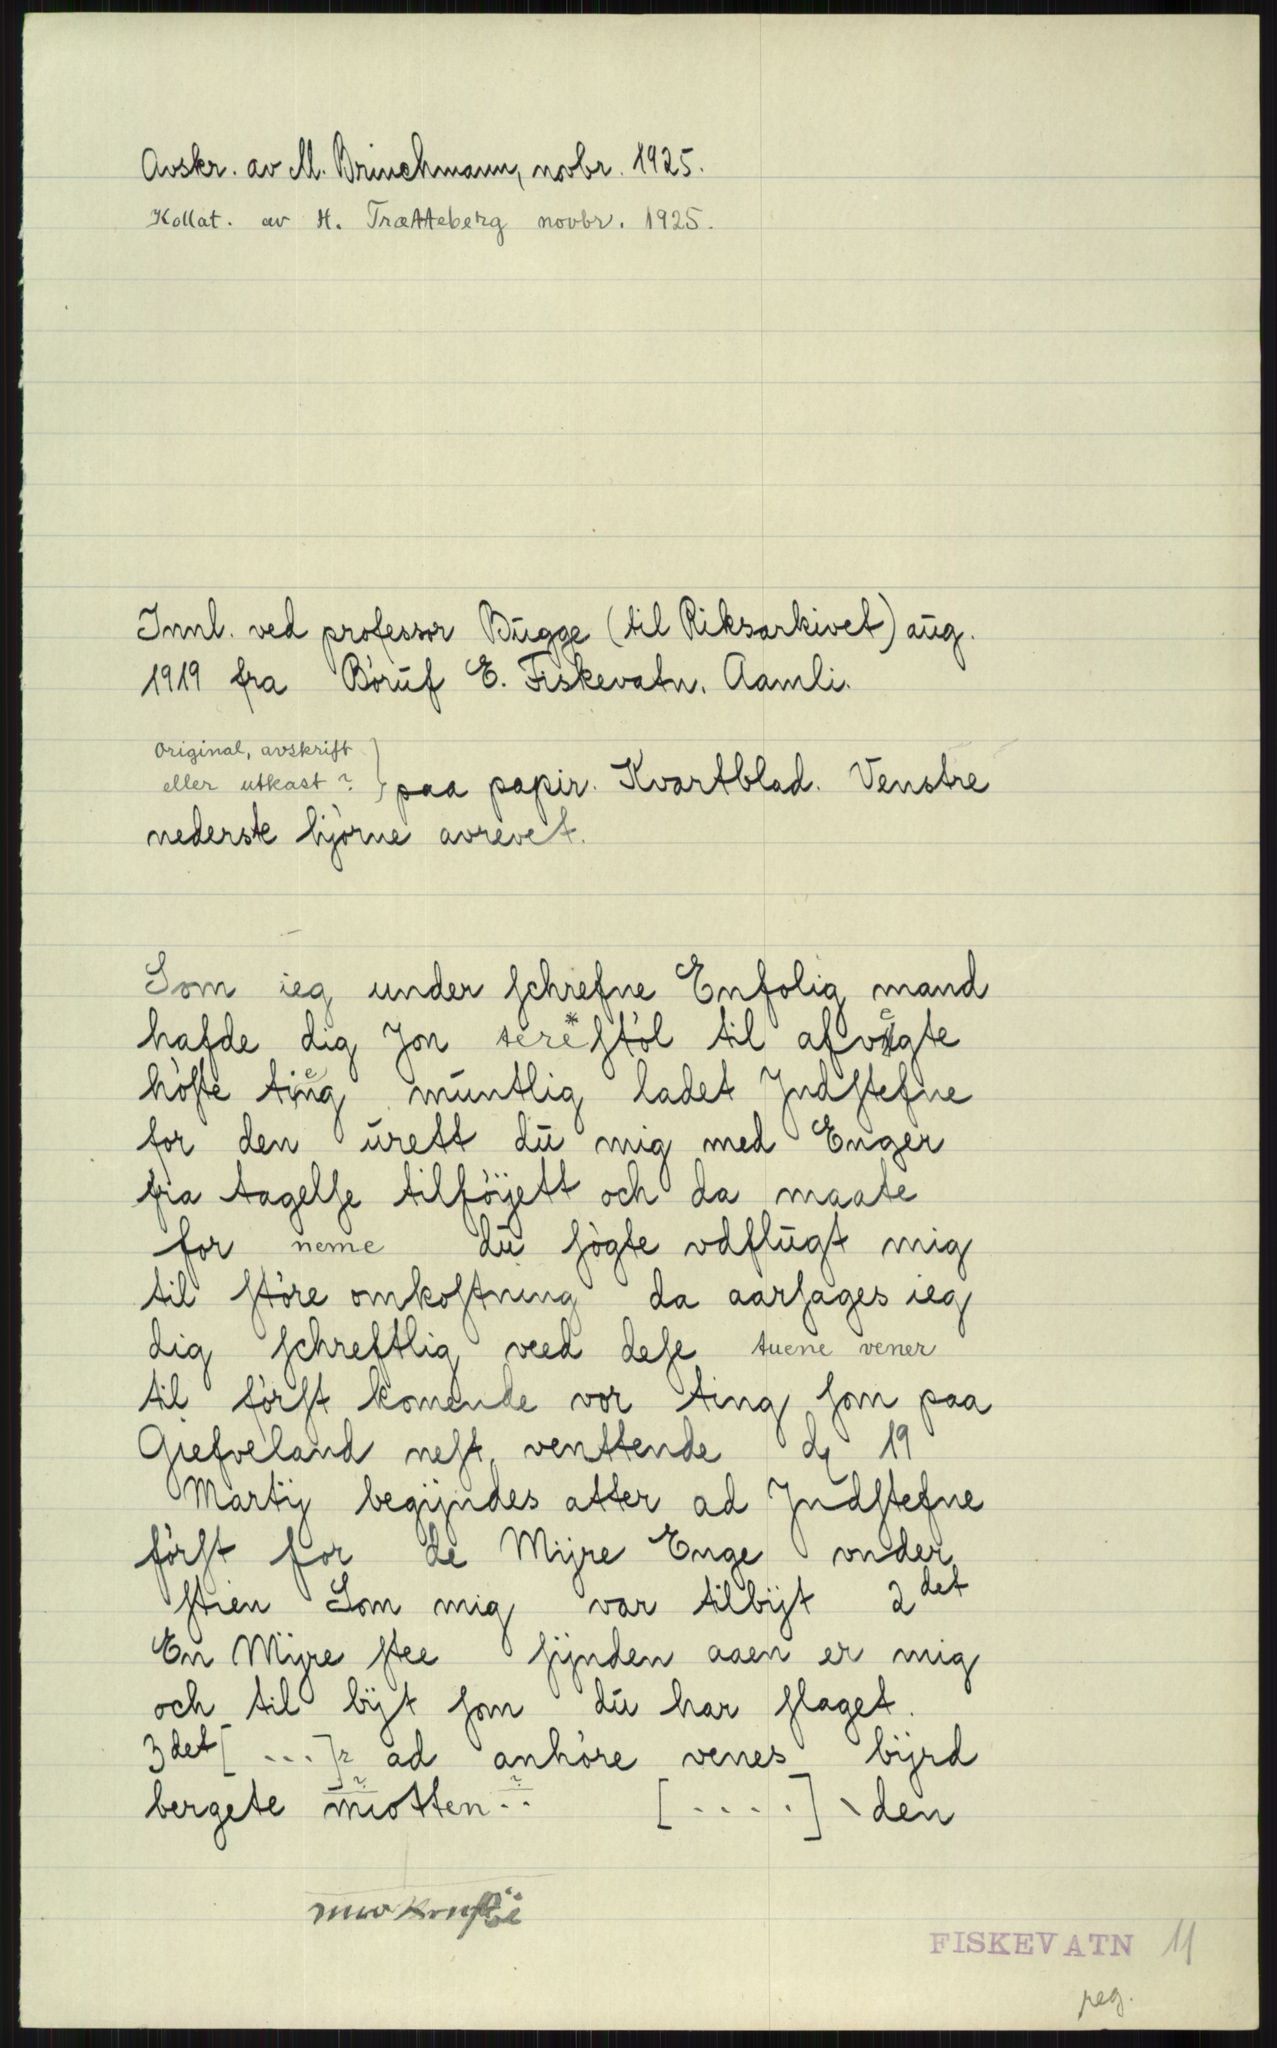 Avskr. av M. Brinchmann, novbr. 1925.
Kollat. av H. Trætteberg novbr. 1925.
Innl. ved professor Bugge (til Riksarkivet) aug.
1919 fra Böruf E. Fiskevatn. Aamli.
Original, avskrift
eller utkast ? } paa papir. Kvartblad. Venstre
nederste hjörne avrevet.
Som ieg under ſchrefne Enfolig mand
hafde dig Jon ſtöl til
höſte muntlig ladet Jndſtefne
for den urett du mig med Enger
fra tagelſe tilföyett och da maate
for neme du ſögte vdflugt mig
til ſtöre omkoſtning da aarſages ieg
dig ſchreftlig veed deſe tuene vener
til förſt komende vor ting ſom paa
Giefveland neſt venttende dꝫ 19
Martij begijndes atter ad Jndſtefne
förſt for de Mijre Enge vnder
ſtien Som mig var tilbijt 2det
En Mijre ſtee ſijnden aaen er mig
och til bijt ſom du har ſlaget.
3det [ ...]? ad anhöre venes bijrd
bergete miotten .. [.....] den
FISKEVATN 11
reg.